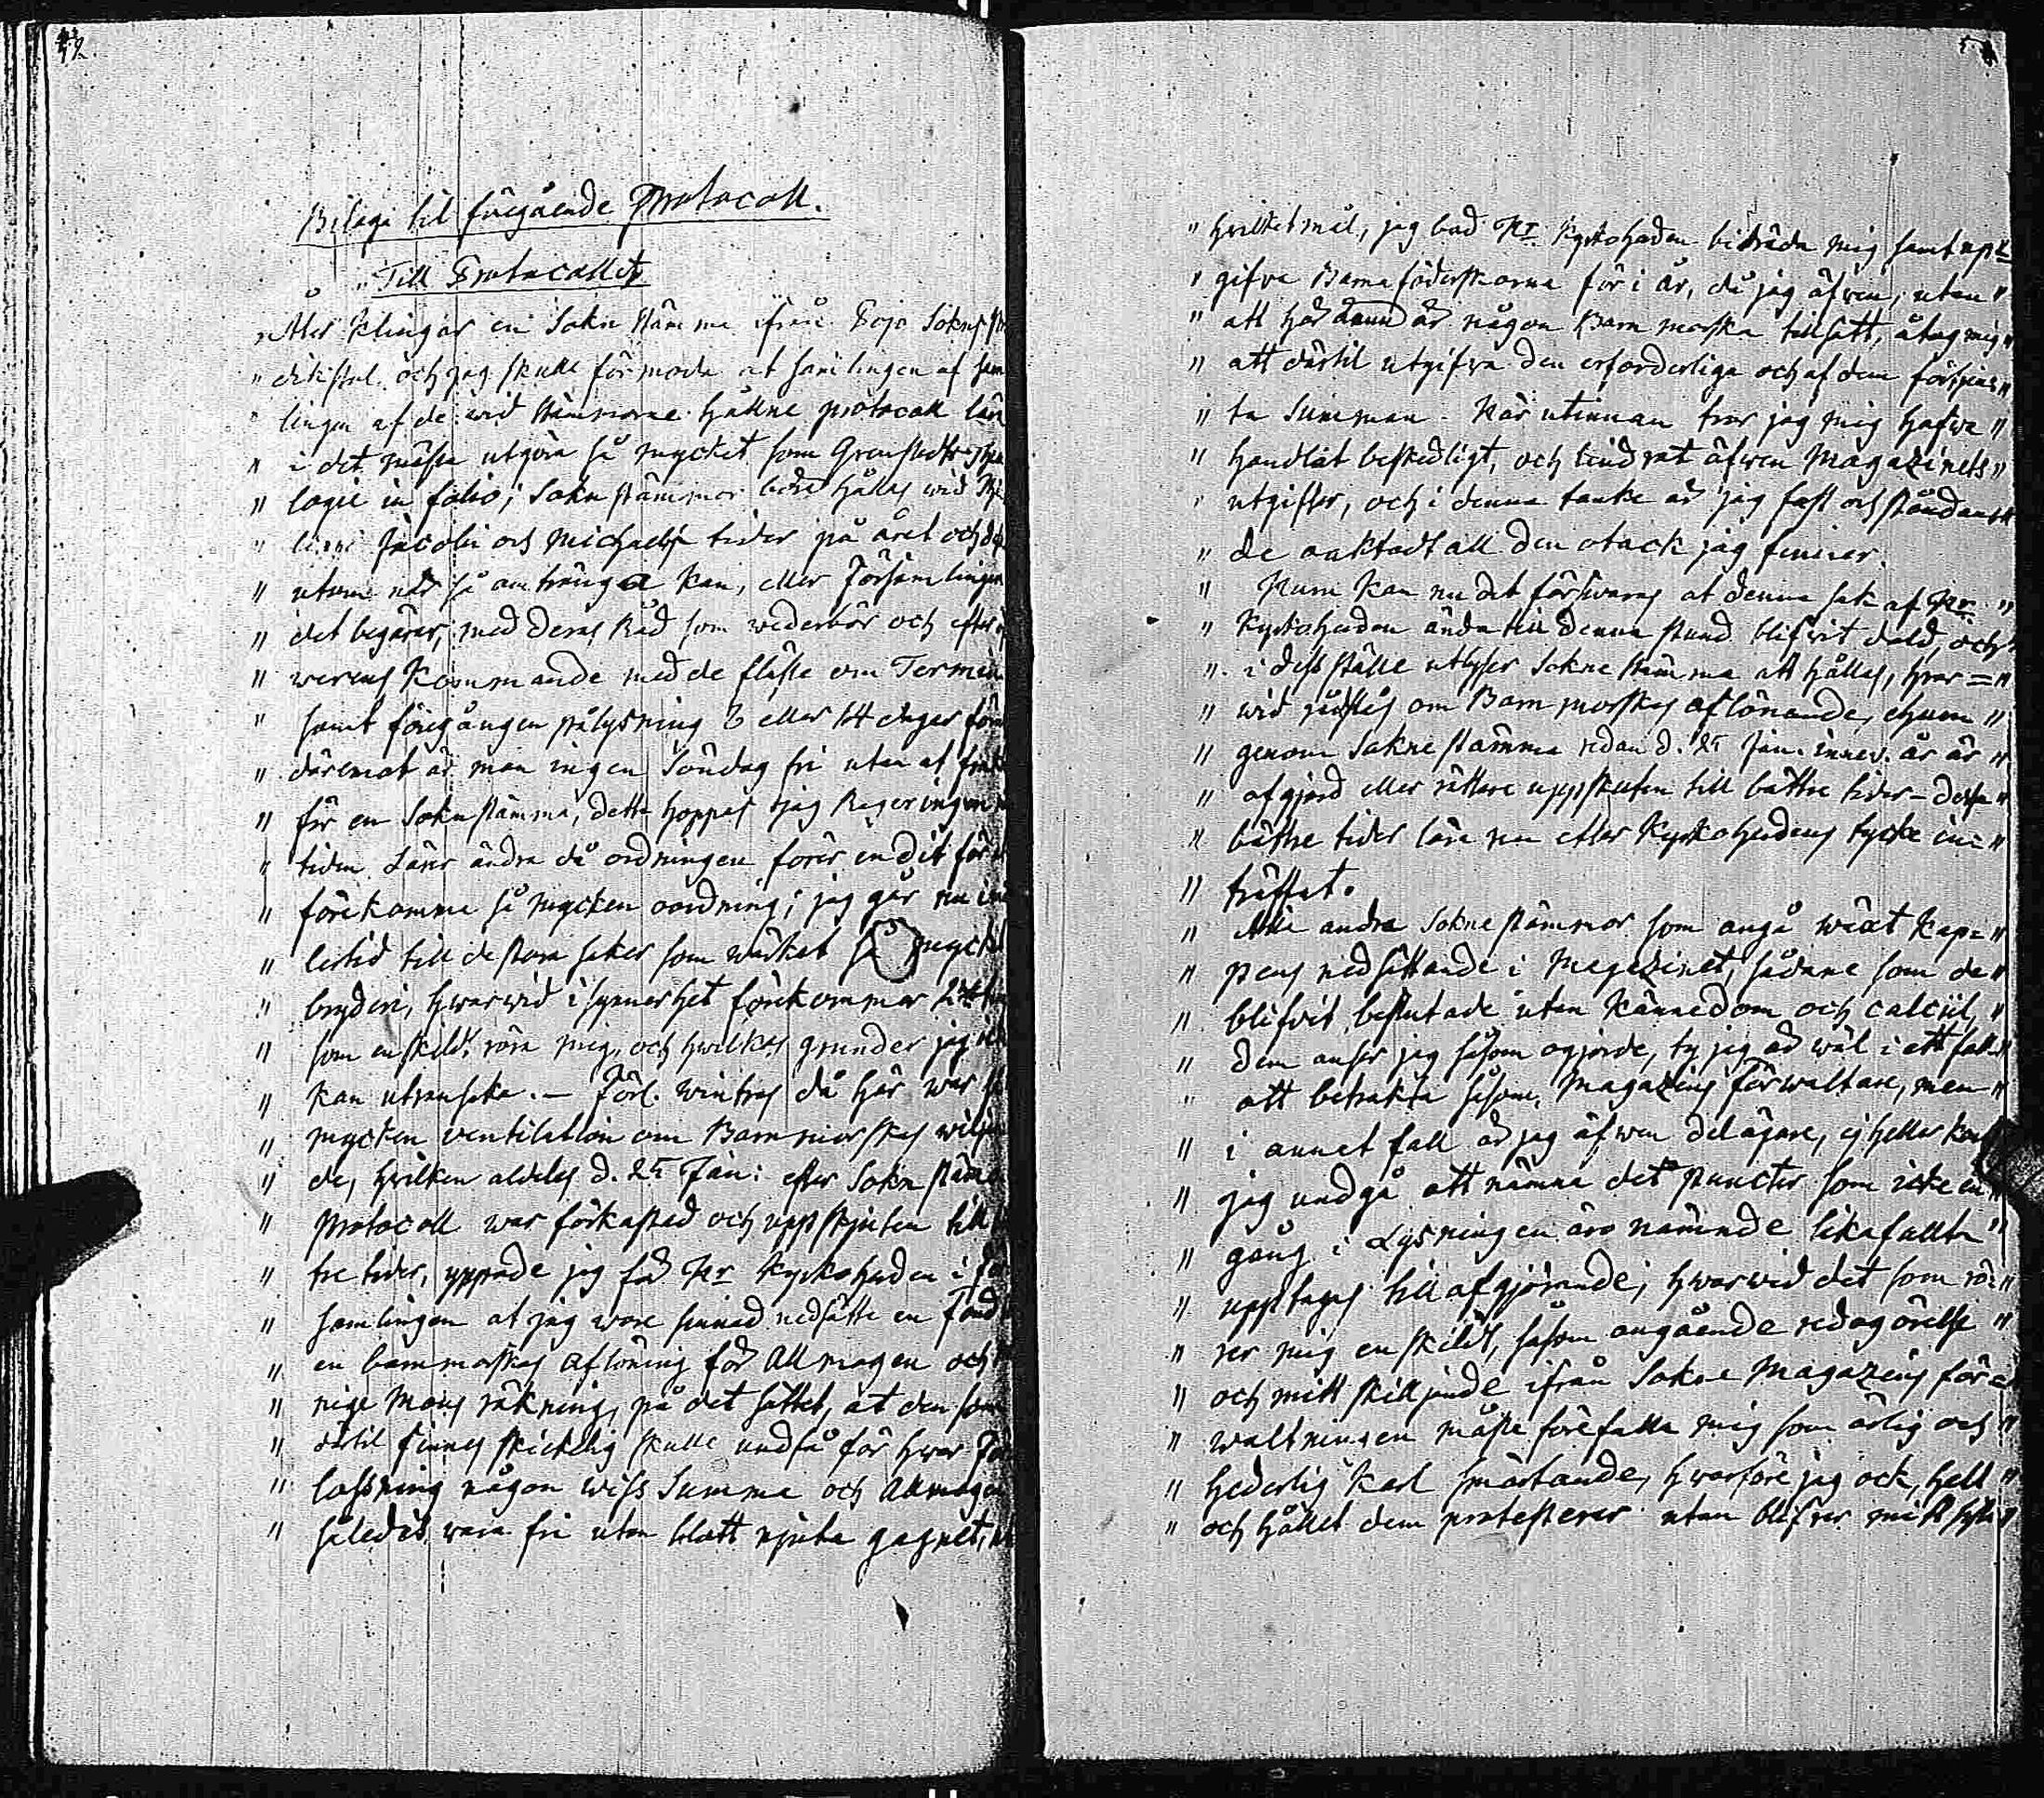 Bilaga til föregående Protocoll.
"Till Protocollet
"Åter klingar en Sokn stämma ifrån Pojo Sokns
" dikstol och jag skulle förmoda at samlingen af sam
" lingen af de wid stämmorne hållne protocoll lär
" i det mästa utgöra så mycket som Grenstedts
" logie in folio; Soknstämmor böra hållas wid
" Jacobi och Michaelis tider på året och
" utom när så omtränga kan, eller Församlingen
" det begärar, med deras Råd som wederbör och efter
" werens kommande med de fläste om Termin
" samt föregången pålysning 8 eller 14 dagar för
" däremot är man ingen Söndag fri utan at
" för en Soknstämma, detta hoppas jag Regeringen
" tiden lärer ändra då ordningen förer en dit för
" förekomma så mycken oordning; jag går nu
" lertid till de stora saker som wärkat så mycket
" bryderi, hwarwid i synnerhet förekommer
" som enskildt röra mig, och hwilkas grunder jag
" kan utransaka. – Förl. wintras då här war så
" mycken ventilation om Barnmorskas
" de, hwilken aldeles d. 25 Jan: efter Soknstäm
" Protocoll war förkastad och uppskjuten till
" tre tider, yppade jag för Hr Kyrkoherden i för
" samlingen at jag wore sinnad nedsätta en fond
" en barnmorskas aflöning för Allmogen och
" nige Mans räkning, på det sättet, at den som
" därtil finnes skickelig skulle undfå för hwar För
" lossning någon wiss Summa och Allmogen
" således wara fri utan blott njuta gagnet,
" hvilket mål, jag bad Hr Kyrkoherden biträda mig samt upp=
" gifwa Barnaföderskorna för i år, då jag äfwen, utan "
" att här ännu är någon Barnmorska tillsatt, åtog mig "
" att därtil utgifwa den erforderliga och af dem förtjen "
" ta Summan. Här utinnan tror jag mig hafwa "
" handlat beskedligt, och lindrat äfwen Magazinets "
" utgifter, och i denna tanke är jag fast och ståndan "
" de oaktadt all den otack jag finner.
" Hum kan nu det försvaras at denna sak af Hr "
" Kyrkoherden ända till denna stund blifwit dold, och "
" i dess ställe utlyser Sokne stämma att hållas, hvar= "
" wid påstås om Barnmorskas aflönande, ehuru "
" genom Sokne stämma redan d. 25 Jan. innev. år är "
" afgjord eller rättare uppskuten till bättre tider – desse "
" bättre tider lära nu efter Kyrkoherdens tycke in= "
" träffat.
" Alla andra Sokne stämmor som angå wäxt Kap= "
" pens nedsättande i Magazinet, sådane som de "
" blifvit beslutade utan kännedom och calcül, "
" dem anser jag såsom ogjorde, ty jag är wäl i ett fall "
" att betrakta såsom Magazins förwaltare, men "
" i annet fall är jag äfwen delägare, ej heller kan
" jag undgå att nämna det Puncter som icke en "
" gång i Lysningen äro nämnde likafullt "
" upptages till afgjörande, hwarwid det som rö= "
" rer mig enskildt, såsom angående redogörelse "
" och mitt skiljande ifrån Sokne Magazins för=
" waltningen måste förefalla mig som ärlig och "
" hederlig Karl smärtande, hwarföre jag ock, helt "
" och hållet dem protesterar utan blifver mitt